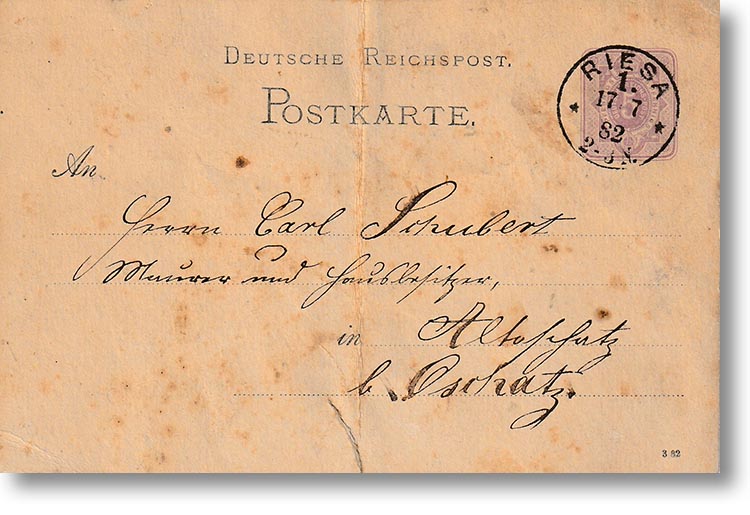 DEUTSCHE REICHSPOST.
POSTKARTE.
RIESA
1.
17 7
82
2-3 N.
An
Herrn Carl Schubert
Maurer und Hausbesitzer,
in Altoschatz
b. Oschatz.
3 82